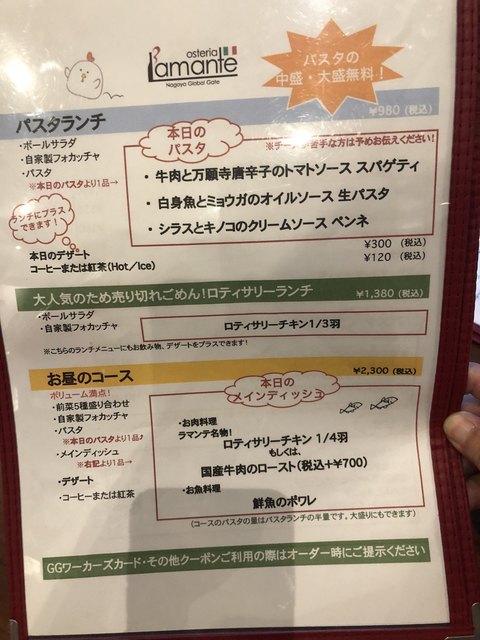 osteria
l'amante
Nagoya Global Gate
パスタの
中盛・大盛無料！
¥980（税込）
パスタランチ
・ボールサラダ
・自家製フォカッチャ
・パスタ
※本日のパスタより1品→
本日の
パスタ
が苦手な方は予めお伝えください!
・牛肉と万願寺唐辛子のトマトソース スパゲティ
・白身魚とミョウガのオイルソース 生パスタ
・シラスとキノコのクリームソース ペンネ
ランチにプラス
できます！
本日のデザート ¥300（税込）
コーヒーまたは紅茶(Hot／Ice) ¥120（税込）
大人気のため売り切れごめん！ロティサリーランチ ¥1,380（税込）
・ボールサラダ
・自家製フォカッチャ
ロティサリーチキン1/3羽
※こちらのランチメニューにもお飲み物、デザートをプラスできます！
お昼のコース ¥2,300（税込）
ボリューム満点！
・前菜5種盛り合わせ
・自家製フォカッチャ
・パスタ
※本日のパスタより1品♪
・メインディッシュ
※右記より1品→
・デザート
・コーヒーまたは紅茶
本日の
メインディッシュ
・お肉料理
ラマンテ名物！
ロティサリーチキン 1/4羽
もしくは、
国産牛肉のロースト（税込+¥700）
・お魚料理
鮮魚のポワレ
（コースのパスタの量はパスタランチの半量です。大盛りにもできます）
GGワーカーズカード・その他クーポンご利用の際はオーダー時にご提示ください